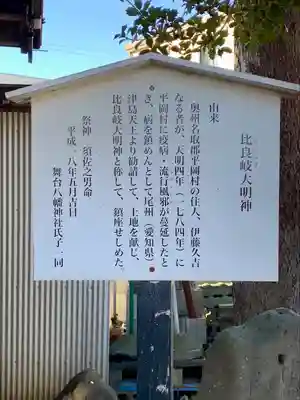 比良岐大明神
由来
奥州名取郡平岡村の住人、伊藤久吉
なる者が、天明四年(一七八四年)に
平岡村に疫病・流行風邪が蔓延したと
き、病を鎮めんとして尾州(愛知県)
津島天王より勧請して、土地を献じ、
比良岐大明神と称して、鎮座せしめた。
祭神 須佐之男命
平成 八年五月吉日
舞台八幡神社氏子一同